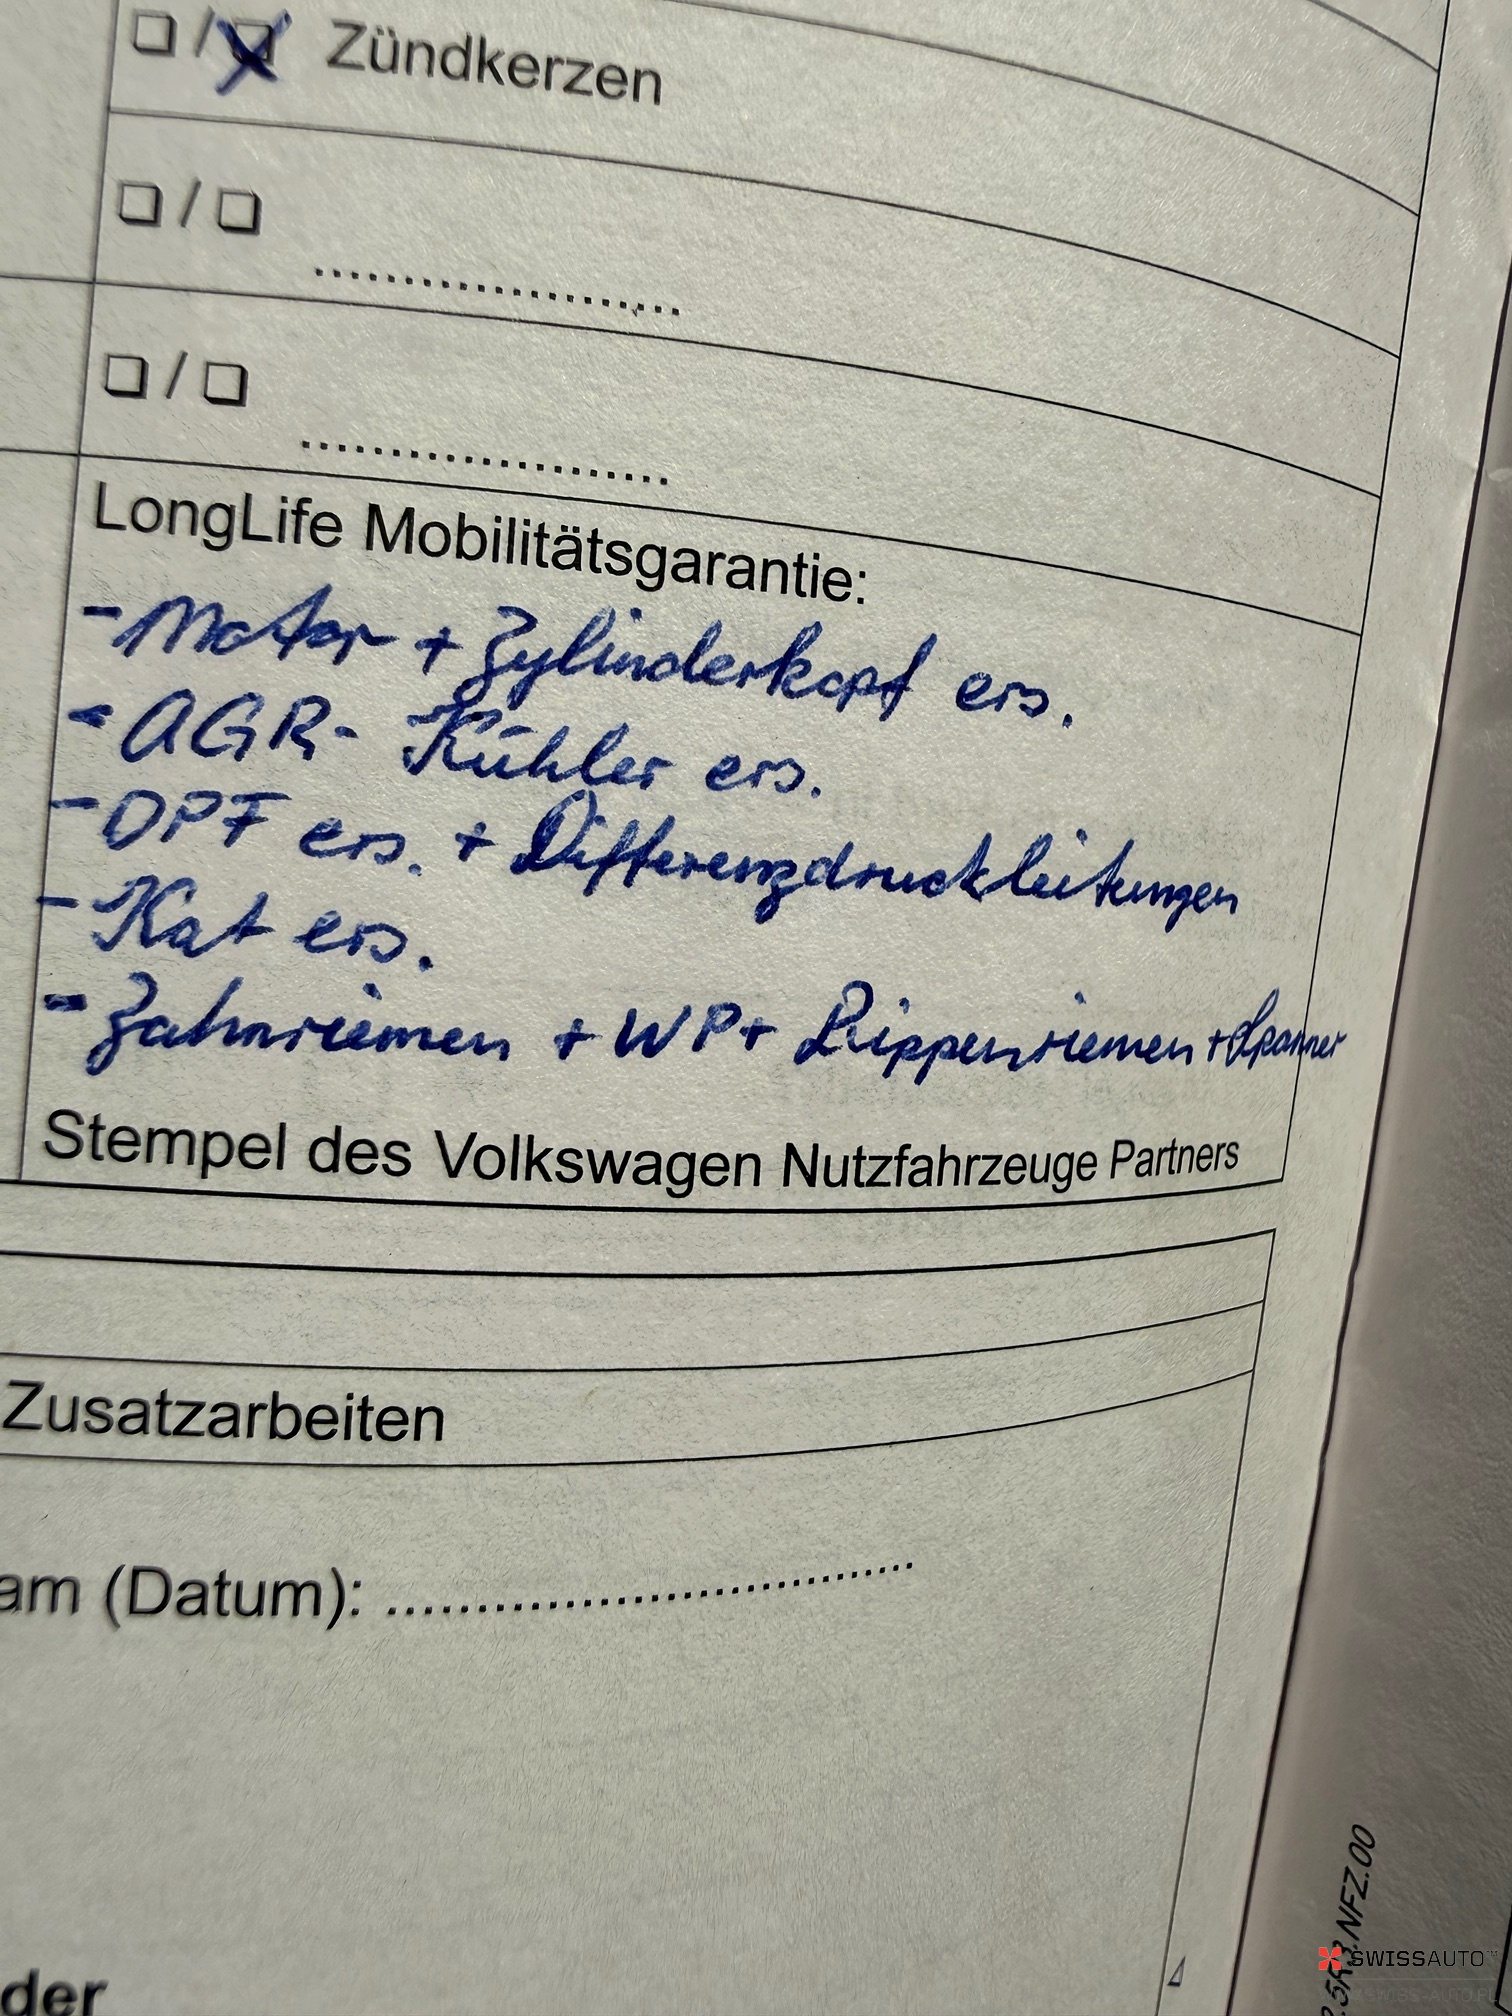 ❏ / ❏ Zündkerzen
❏ / ❏ ........................
❏ / ❏ ........................
LongLife Mobilitätsgarantie:
- Motor + Zylinderkopf ers.
- AGR- Kühler ers.
- DPF ers. + Differenzdruckleitungen
- Kat ers.
- Zahnriemen + WP + Rippenriemen + Spanner
Stempel des Volkswagen Nutzfahrzeuge Partners
Zusatzarbeiten
am (Datum): ..................................
der
.5R3.NFZ.00
SWISSAUTO